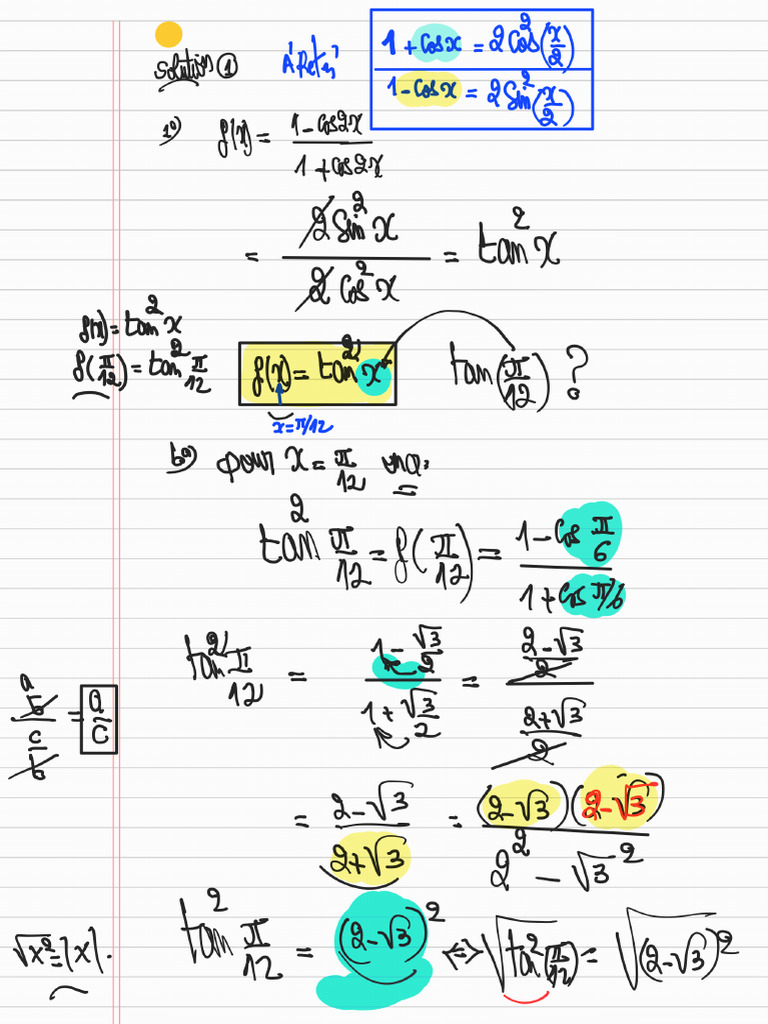 Solution ①
À Retenir
1 + cos x = 2cos²(x/2)
1 - cos x = 2sin²(x/2)
1°) f(x) = (1 - cos2x)/(1 + cos2x)
= (2sin²x)/(2cos²x) = tan²x
f(x) = tan²x
f(π/12) = tan²π/12
f(x) = tan²x
tan(π/12) ?
x = π/12
b°) pour x = π/12 on a:
tan² π/12 = f(π/12) = (1 - cos π/6)/(1 + cos π/6)
tan² π/12 = (1 - √3/2)/(1 + √3/2) = ((2 - √3)/2)/((2 + √3)/2)
(a/b)/(c/b) = a/c
= (2 - √3)/(2 + √3) = ((2 - √3)(2 - √3))/(2² - √3²)
tan² π/12 = (2 - √3)² <=> √(tan²(π/12)) = √((2 - √3)²)
√x² = |x|.